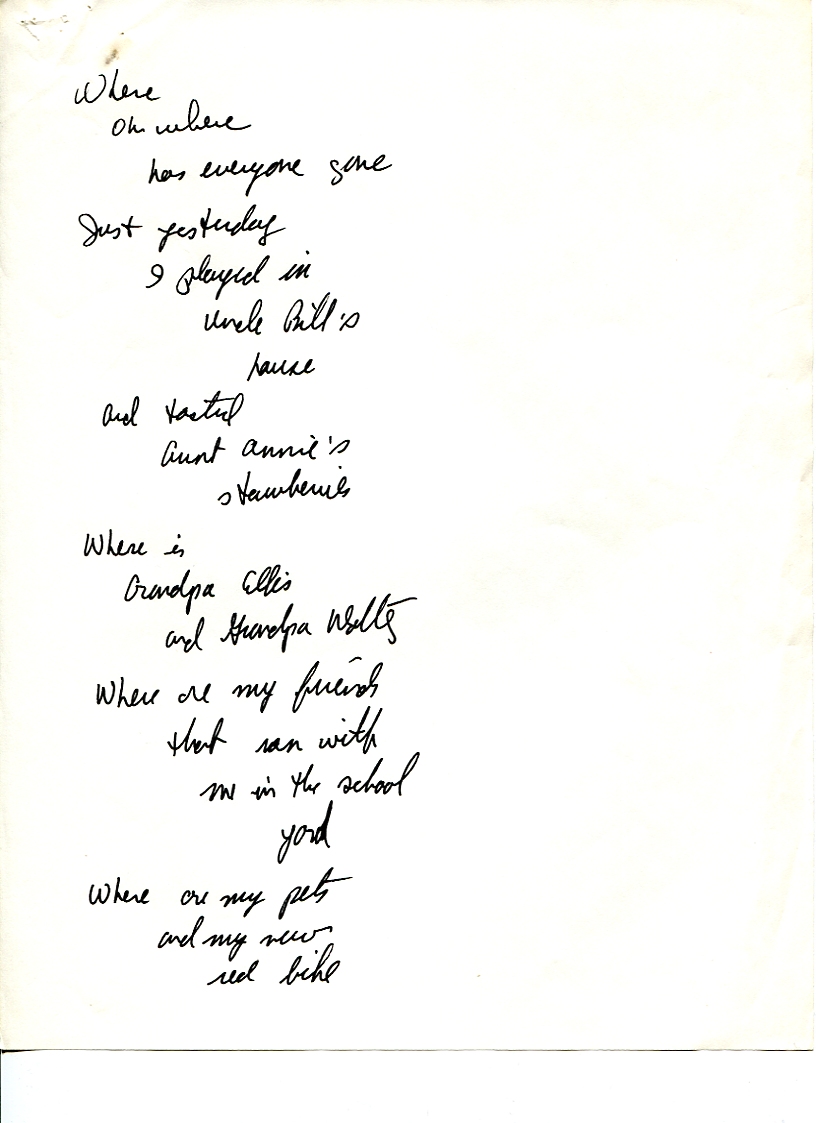 Where
oh where
has everyone gone
Just yesterday
I played in
Uncle Bill's
house
and tasted
Aunt Annie's
strawberries
Where is
Grandpa Ellis
and Grandpa
Where are my friends
that ran with
me in the school
yard
Where are my pets
and my new
red bike